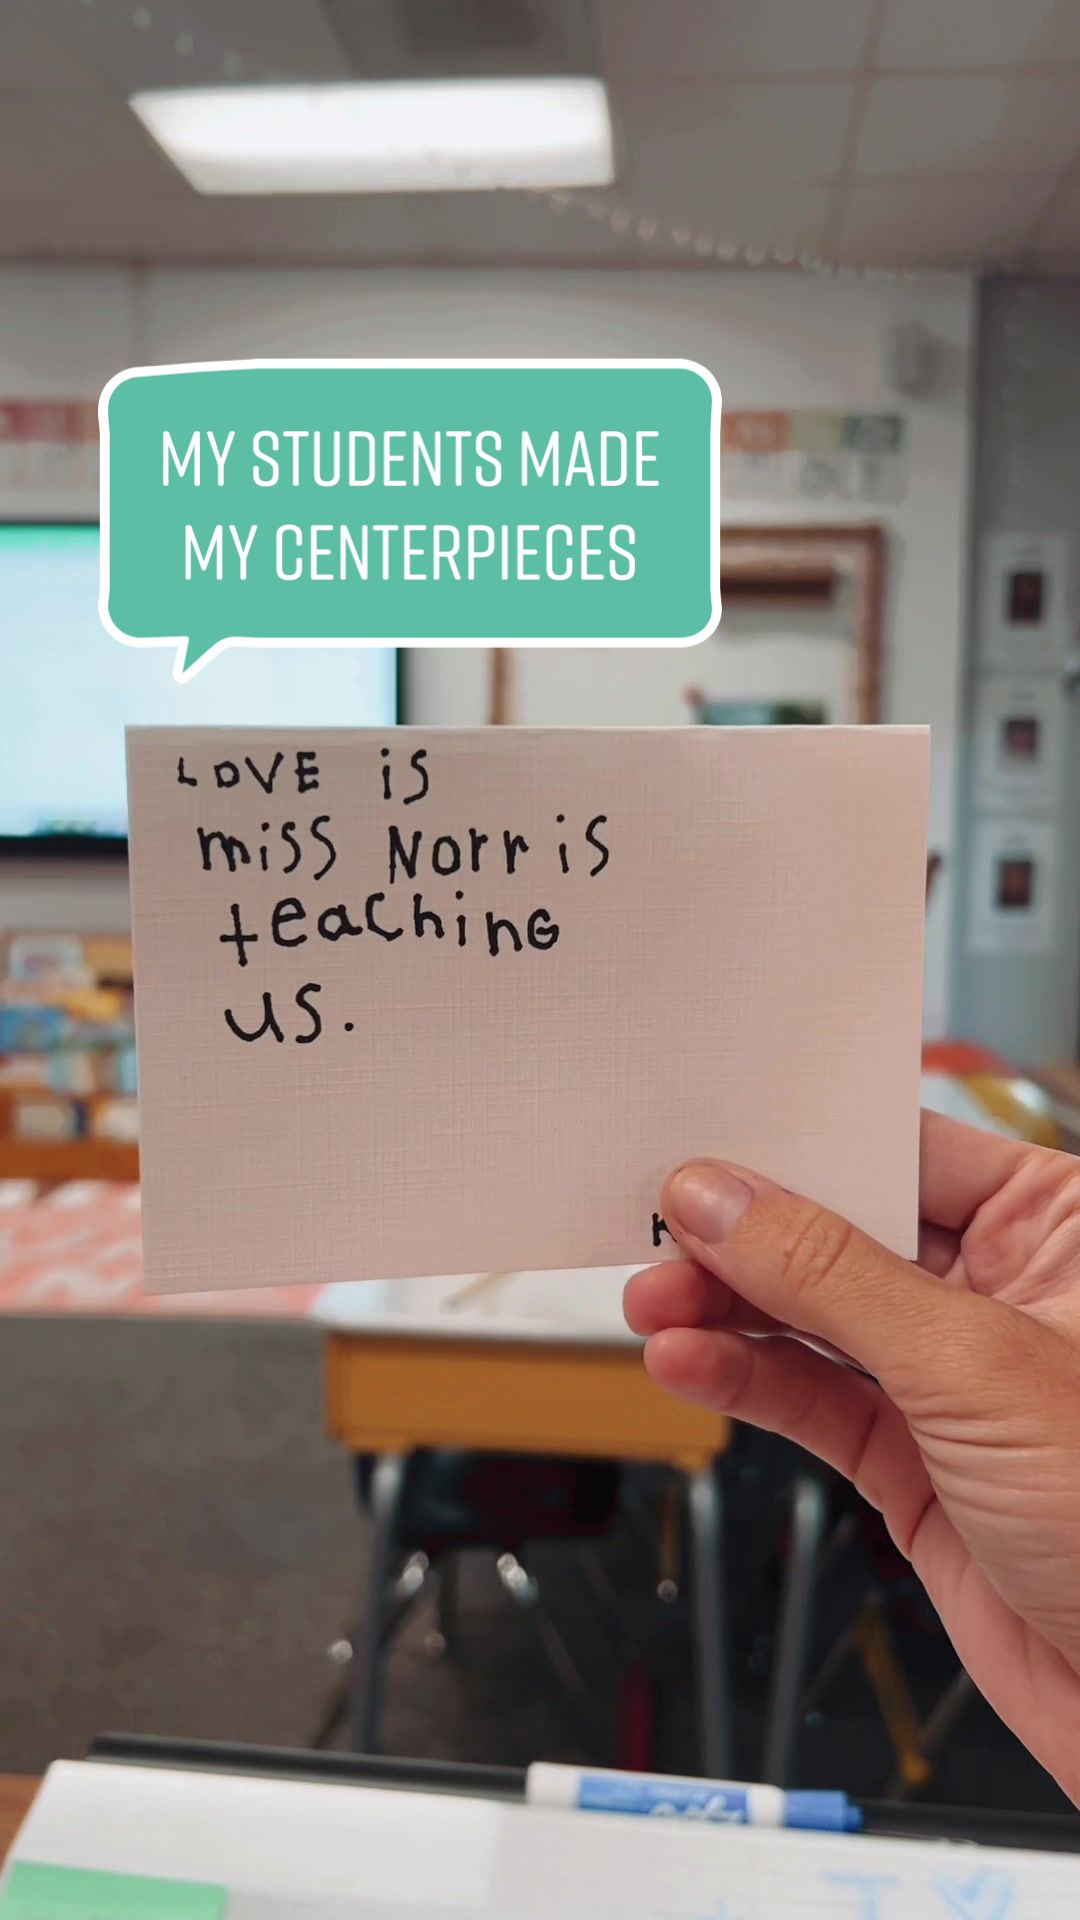 MY STUDENTS MADE
MY CENTERPIECES
LOVE is
miss Norris
teachinG
us.